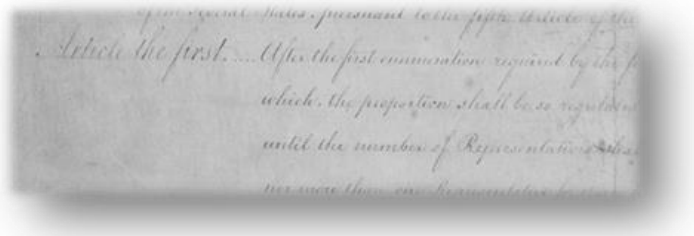 several States, pursuant to the fifth Article of the
Article the first.... After the first enumeration required by the
which, the proportion shall be so regulated
until the number of Representatives
nor more than one Representative for